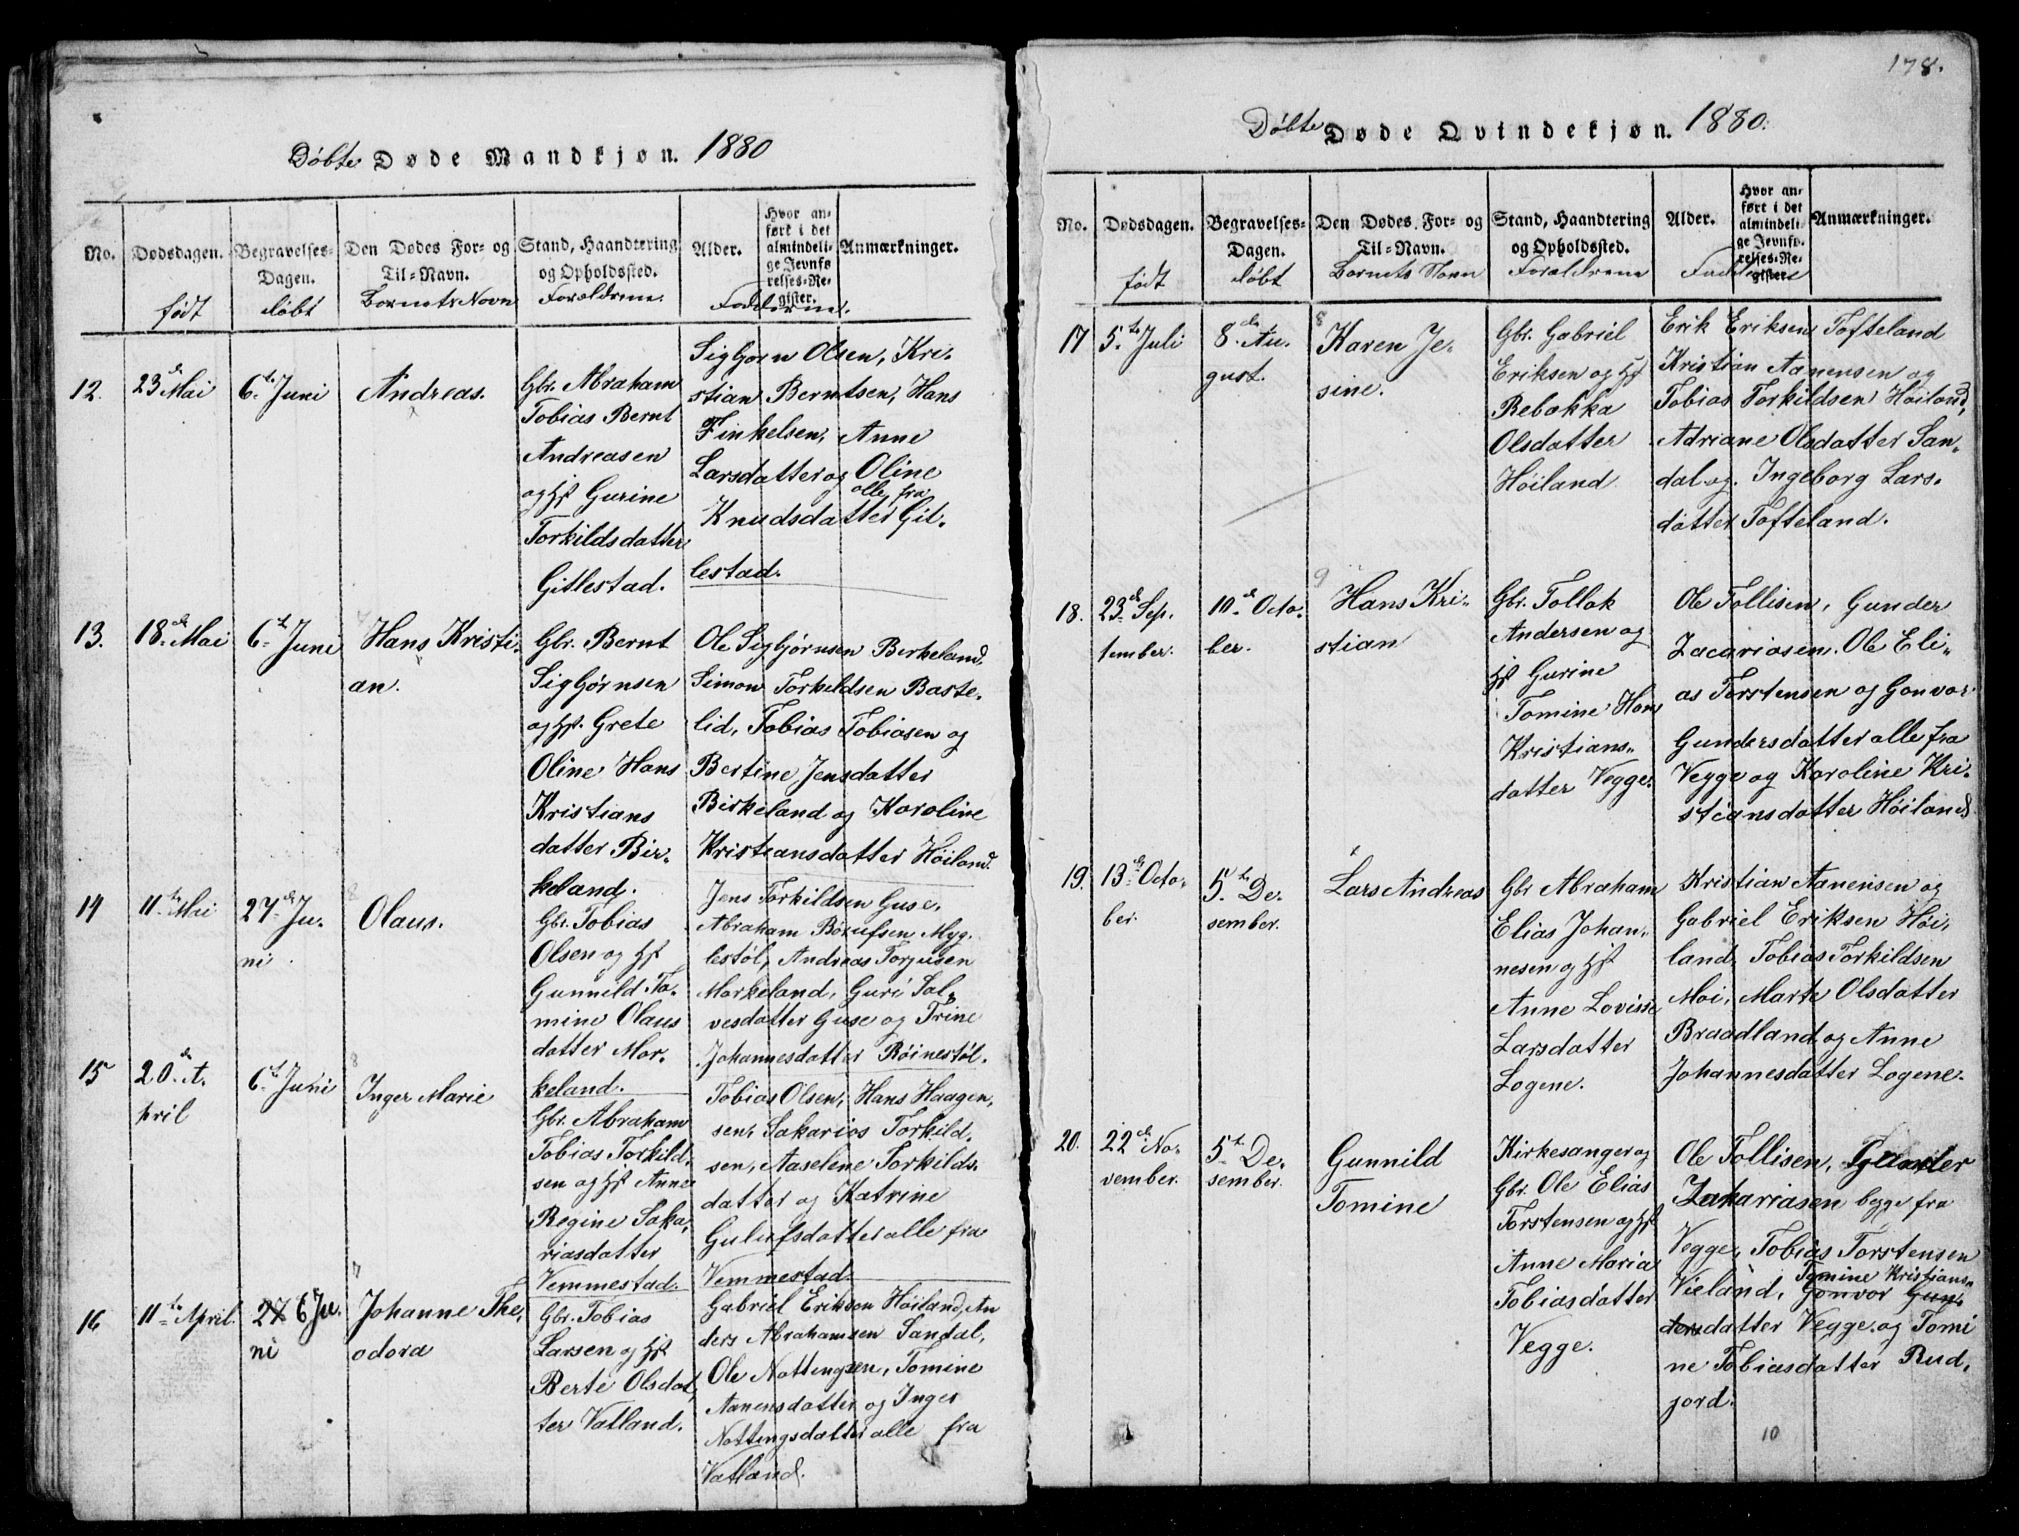 Döbte Døde Mandkjøn. 1880
No.
Dødsdagen.
født
Begravelses-
Dagen.
døbt
Den Dødes For- og
Til-Navn.
Barnets Navn
Stand, Haandtering
og Opholdssted.
Forældrene.
Alder.
Hvor an-
ført i det
almindeli-
ge Jevnfø
relses-Re-
gister.
Anmærkninger.
Fadderne.
12.
23d Mai
6te Juni
Andreas.
Gbr. Abraham
Tobias Bernt
Andreasen
og Hst Gurine
Torkildsdatter
Gitlestad.
Sigbjørn Olsen, Kri-
stian Berntsen, Hans
Finkelsen, Anne
Larsdatter og Oline
alle fra
Knudsdatter Git-
lestad.
13.
18de Mai
6te Juni
Hans Kristi-
an.
Gbr. Bernt
Sigbjørnsen
og Hst. Grete
Oline Hans
Kristians
datter Bir-
keland.
Ole Sigbjørnsen Birkeland.
Simon Torkildsen Baste-
lid, Tobias Tobiasen og
Bertine Jensdatter
Birkeland og Karoline
Kristiansdatter Höiland.
14
11te Mai
27de Ju-
ni.
8
Olaus.
Gbr. Tobias
Olsen og Hst
Gunnild To-
mine Olaus
datter Mor-
keland.
Jens Torkildsen Guse,
Abraham Myg-
lestøl, Andreas Torjusen
Morkeland, Guri Sal-
vesdatter Guse og Trine
Johannesdatter Röinestøl.
15
20de A-
pril
6te Juni
8
Inger Marie
Gbr. Abraham
Tobias Torkild-
sen og Hst Anne
Regine Saka-
riasdatter
Vemmestad.
Tobias Olsen, Hans Haagen-
sen, Sakarias Torkild-
sen, Aaselene Torkilds-
datter og Katrine
Gulufsdatter alle fra
Vemmestad.
16
11te April.
27 6 Ju-
ni
7
Johanne The-
odora
Gbr. Tobias
Larsen og Hst
Berte Olsdat-
ter Vatland.
Gabriel Eriksen Höiland, An
ders Abrahamsen Sandal,
Ole Nottengsen, Tomine
Aanensdatter og Inger
Nottingsdatter alle fra
Vatland.
178.
Döbte Døde Qvindekjøn. 1880.
No.
Dødsdagen.
født
Begravelses-
Dagen.
døbt
Den Dødes For- og
Til-Navn.
Barnets Navn
Stand, Haandtering
og Opholdssted.
Forældrene
Alder.
Hvor an-
ført i det
almindeli-
ge Jevnfø-
relses-Re-
gister.
Anmærkninger.
Fadderne
17
5te Juli
8de Au-
gust.
8
Karen Je-
sine.
Gbr. Gabriel
Eriksen og Hst
Rebekka
Olsdatter
Höiland
Erik Eriksen Tofteland
Kristian Aanensen og
Tobias Torkildsen Höiland,
Adriane Olsdatter San-
dal og Ingeborg Lars-
datter Tofteland.
18.
23de Sep-
tember.
10de Octo-
ber.
9
Hans Kri-
stian
Gbr. Tollak
Andersen og
Hst Gurine
Tomine Hans
Kristians-
datter Vegge.
Ole Tollisen, Gunder
Zacariasen, Ole Eli-
as Torstensen og Gonvor
Gundersdatter alle fra
Vegge og Karoline Kri-
stiansdatter Höiland
19.
13de Octo-
ber.
5te De-
sember.
Lars Andreas
Gbr Abraham
Elias Johan-
nesen og Hst
Anne Lovisse
Larsdatter
Logene.
Kristian Aanensen og
Gabriel Eriksen Höi-
land, Tobias Torkildsen
Moi, Marte Olsdatter
Braadland og Anne
Johannesdatter Logene.
20.
22de No-
vember.
5te De-
sember.
Gunnild
Tomine
Kirkesanger og
Gbr. Ole Elias
Torstensen og Hst
Anne Maria
Tobiasdatter
Vegge.
Ole Tollisen, Gunder
Zakariasen begge fra
Vegge, Tobias Torstensen
Tomine Kristians-
Vieland, Gonvor Gun-
dersdatter Vegge og Tomi
ne Tobiasdatter Rud-
jord.
10